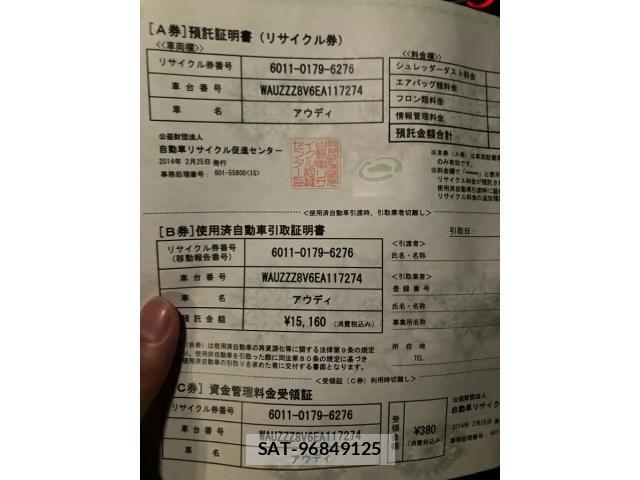 [A券]預託証明書(リサイクル券)
<<車両欄>>
リサイクル券番号 6011-0179-6276
車台番号 WAUZZZ8V6EA117274
車名 アウディ
<<料金欄>>
シュレッダーダスト料金
エアバッグ類料金
フロン類料金
情報管理料金
預託金額合計
公益財団法人
自動車リサイクル促進センター
2014年 2月25日 発行
事務処理番号: 601-55800<1S>
※本券(A券)は車両記載
のみ有効です。
リサイクル料金が預託され
使用済自動車引渡時に
リサイクル料金の追加預
<使用済自動車引渡時、引取業者切離し>
[B券]使用済自動車引取証明書
引取日:
リサイクル券番号
(移動報告番号) 6011-0179-6276
車台番号 WAUZZZ8V6EA117274
車名 アウディ
預託金額 ¥15,160 (消費税込み)
<引渡者>
氏名・名称
<引取業者>
登録番号
氏名・名称
事業所名称
所在地
TEL.
(B券)は使用済自動車の再資源化等に関する法律第9条の規定
、使用済自動車を引取った際に同法第80条の規定に基づき
使用済自動車の引取りを求めた者に交付する書面となります。
<受領証(C券)利用時切離し>
C券]資金管理料金受領証
リサイクル券番号 6011-0179-6276
車台番号 WAUZZZ8V6EA117274
車名 アウディ
受領金額 ¥380 (消費税込み)
公益財団法人
自動車リサイク
2014年 2月25日 発
事務処理番号: 601-
SAT-96849125